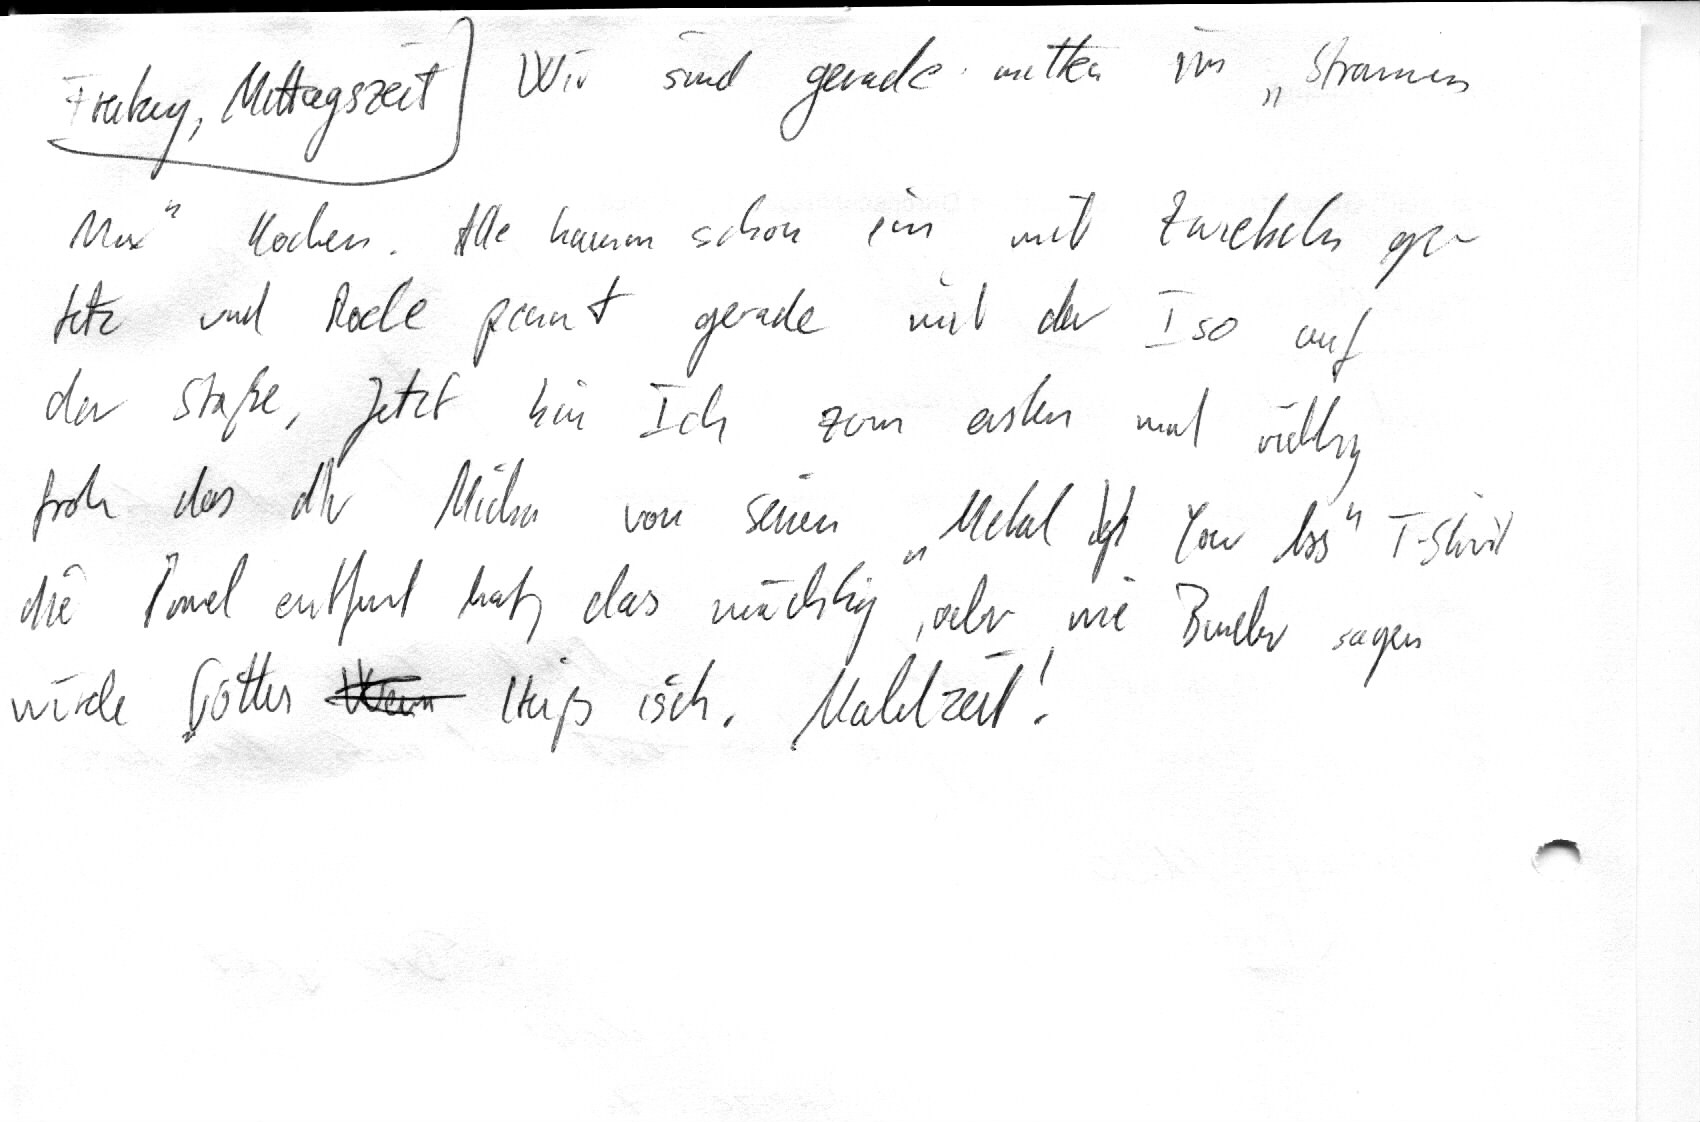 Freitag, Mittagszeit Wir sind gerade mitten im „Strammen
Max" Kochen. Alle haun schon ein mit Zwiebeln ge
fetz und Roele pennt gerade mit der Iso auf
der Staße, Jetzt bin Ich zum ersten mal richtig
froh das dir Micha von seinen „Metal Up Your Ass" T-Shirt
die Ärmel entfernt hat, das mächtig, oder wie Bueller sagen
würde Götter Heiß isch. Mahlzeit!